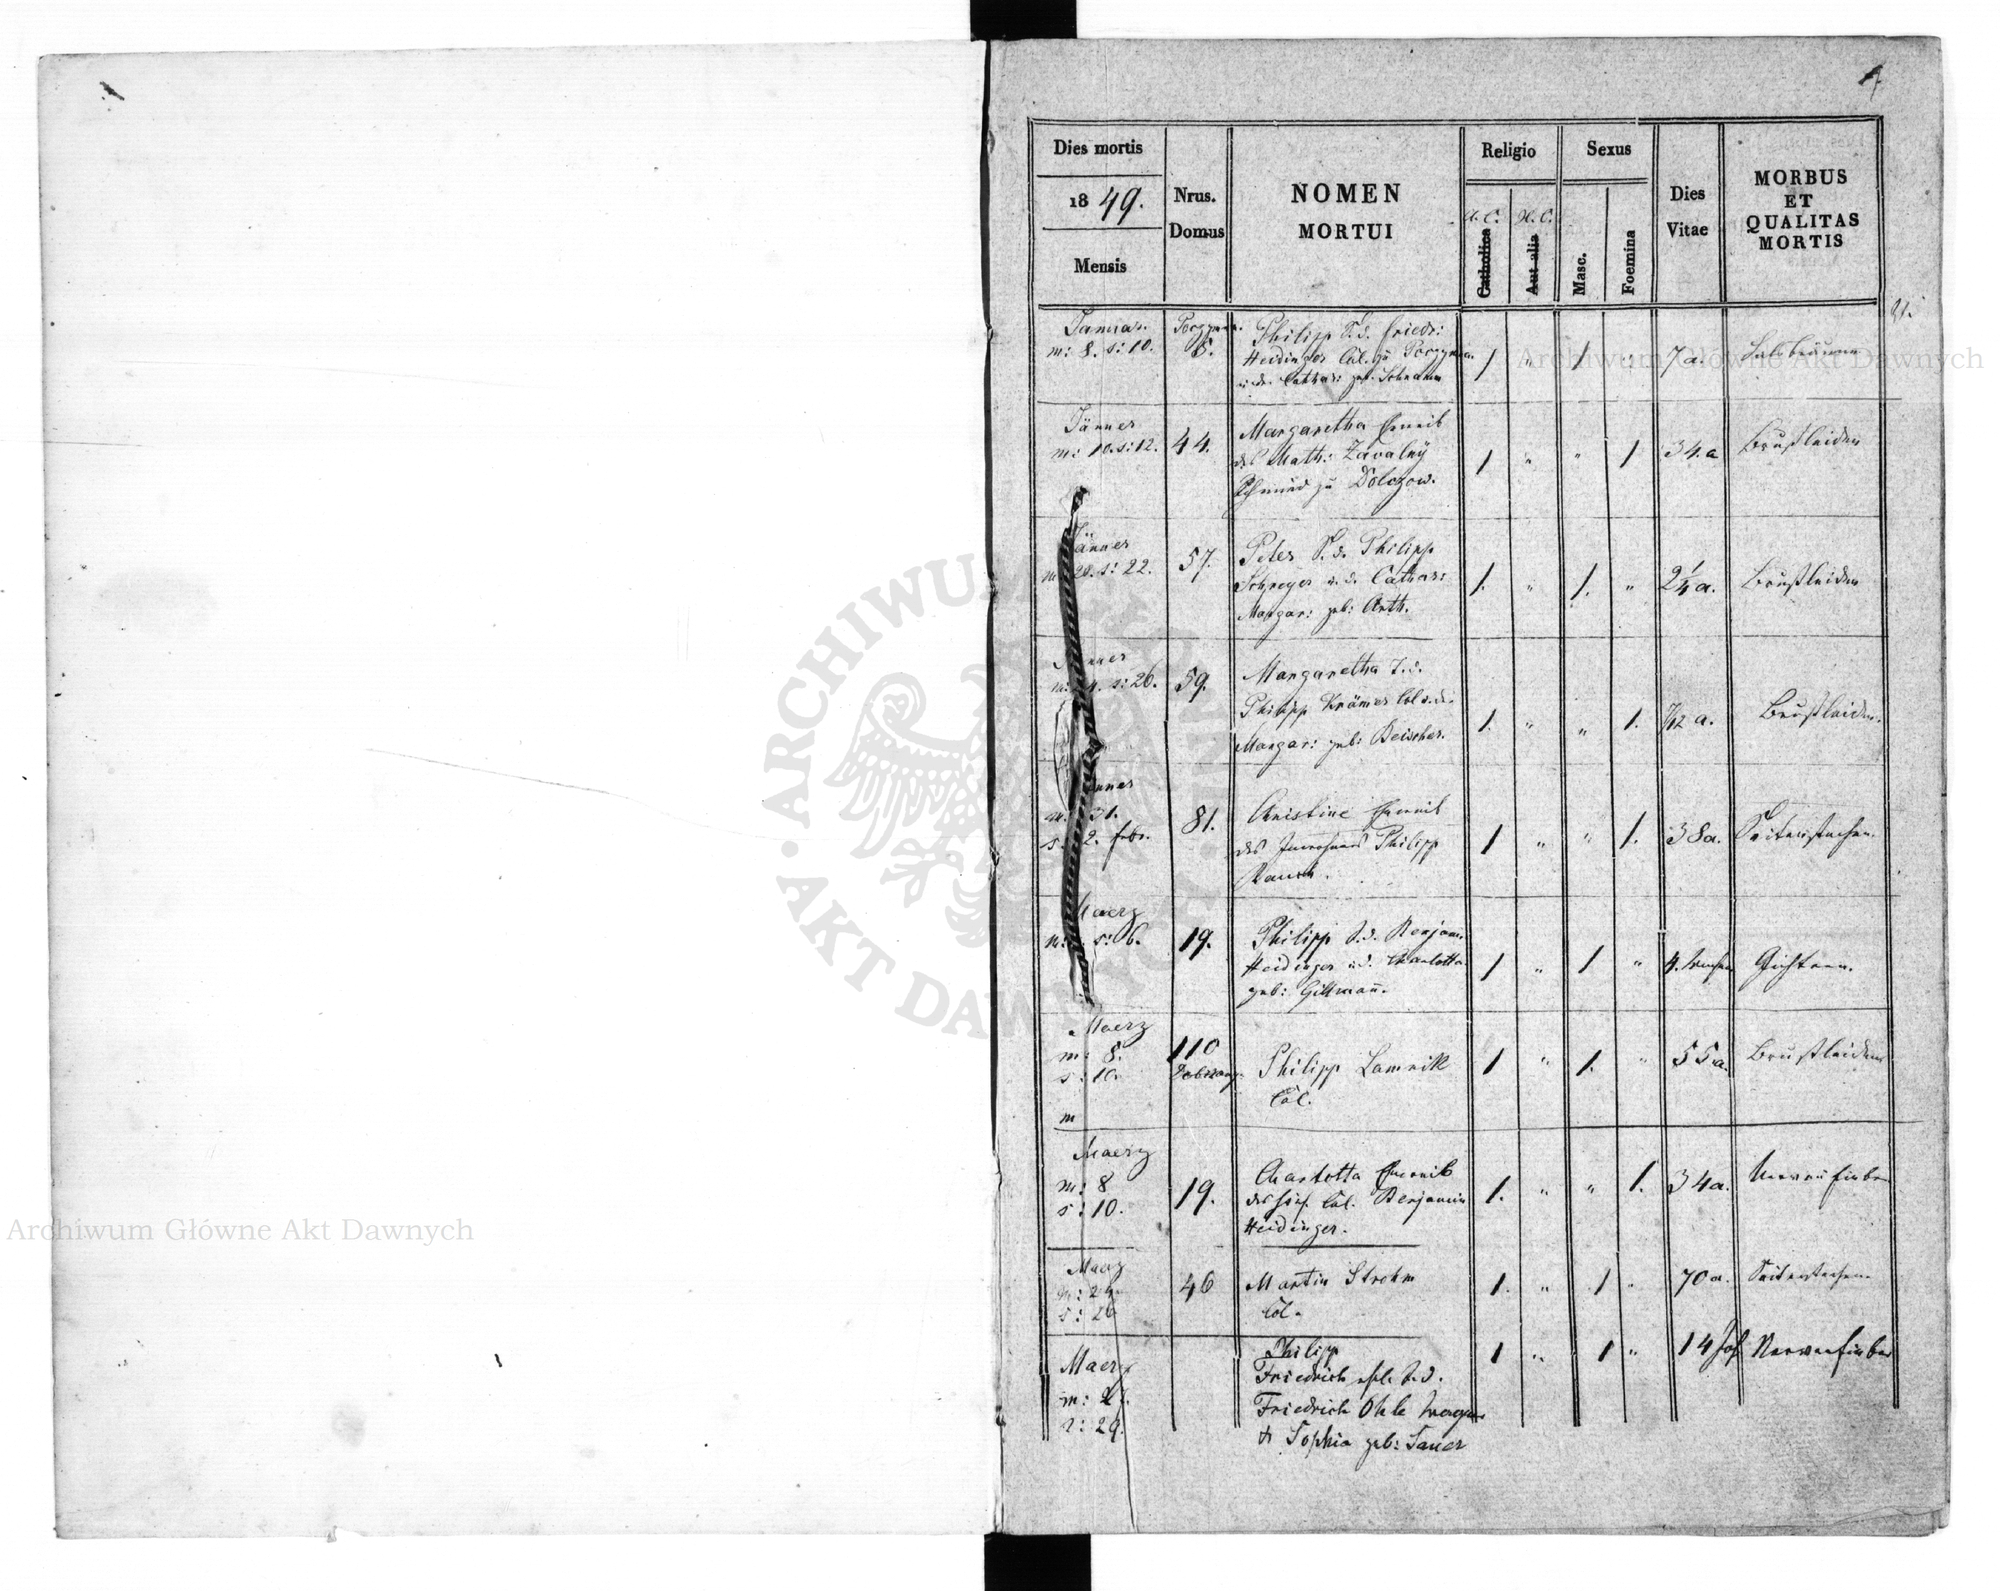 1.
Dies mortis
1849.
Mensis
Nrus.
Domus
NOMEN
MORTUI
Religio
A. C.
Catholica
H. C.
Aut alia
Sexus
Masc.
Foemina
Dies
Vitae
MORBUS
ET
QUALITAS
MORTIS
Januar.
m: 8. s: 10.
8.
Philipp S. d. Friedr:
Heidinger Col. zu
u. d. Cathar: geb. Schramm
1 " 1 " 7 a.
Halsbräune
Jänner
m: 10. s: 12.
44.
Margaretha Eheweib
des Math: Zavalny
Schmied zu Dolczow.
1 " " 1 34. a
Brustleiden
Jänner
m: 20. s: 22.
57.
Peter S. d. Philipp
Schreyer u. d. Cathar:
Margar: geb: Arth.
1. " 1. " 2¼ a.
Brustleiden
m: 24. s: 26.
59.
Margaretha T. d.
Philipp Krämer Col u. d.
Margar: geb: Beischer.
1. " " 1. 7/12 a.
Brustleiden.
31.
s 2. febr.
81.
Christine Eheweib
des Inwohners Philipp
Rauch.
1 " " 1. 38a.
Seitenstechen.
Maerz
s: 6.
19.
Philipp S. d. Benjam.
Heidinger u. d. Charlotta
geb: Gillmann.
1 " 1 " 4. Wochen
Gichtern.
Maerz
m: 8.
s: 10.
m
110
Philipp Lamnik
Col.
1 " 1. " 55 a.
Brustleiden
Maerz
m: 8
s: 10.
19.
Charlotta Eheweib
des Col. Benjamin
Heidinger.
1. " " 1. 34a.
Nervenfieber
Maerz
m: 24.
s: 26
46
Martin Strohm
Col.
1. " 1 " 70 a.
Seitenstechen
Maerz
m: 27.
s: 29.
Philipp
Friedrich ehl. S. d.
Friedrich Ohle
& Sophia geb: Sauer
1 " 1 " 14
Nervenfieber
Archiwum Główne Akt Dawnych
Archiwum Główne Akt Dawnych